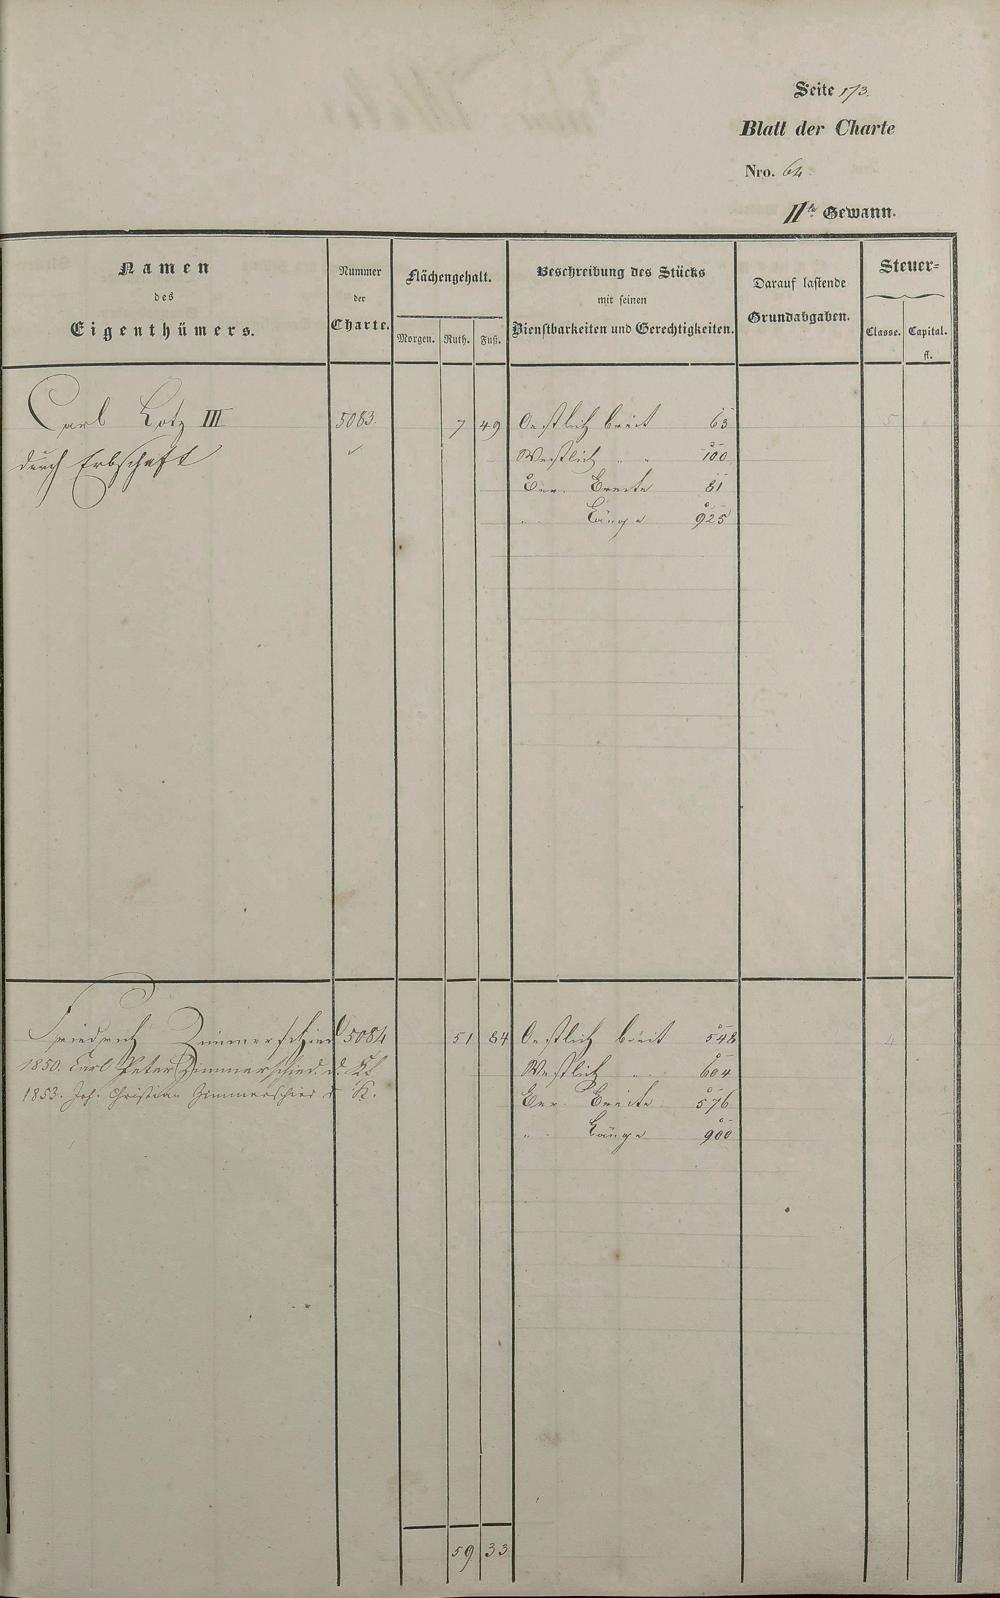 Seite 173.
Blatt der Charte
Nro. 64.
IIte Gewann.
Namen
des
Eigenthümers.
Nummer
der
Charte.
Flächengehalt.
Morgen. Ruth. Fuß.
Beschreibung des Stücks
mit seinen
Dienstbarkeiten und Gerechtigkeiten.
Darauf lastende
Grundabgaben.
Steuer=
Classe. Capital.
fl.
Carl Lotz III 5083. 7 49 Oestlich breit 63 5
durch Erbschaft Westlich " " 100
Ber. Breite 81
" Länge 925
Friedrich Zimmerschied 5084 51 84 Oestlich breit 548 4
1850. Carl Peter Zimmerschied d. Kf Westlich " " 604
1853. Joh. Christian Zimmerschied d. K. Ber. Breite 576
" Länge 900
59 33